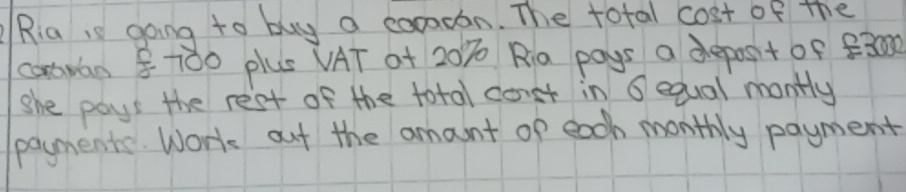 Ria is going to buy a caravan. The total cost of the
caravan £ 700 plus VAT at 20% Ria pays a deposit of £3000
she pays the rest of the total const in 6 equal montly
payments. Work out the amant of each monthly payment